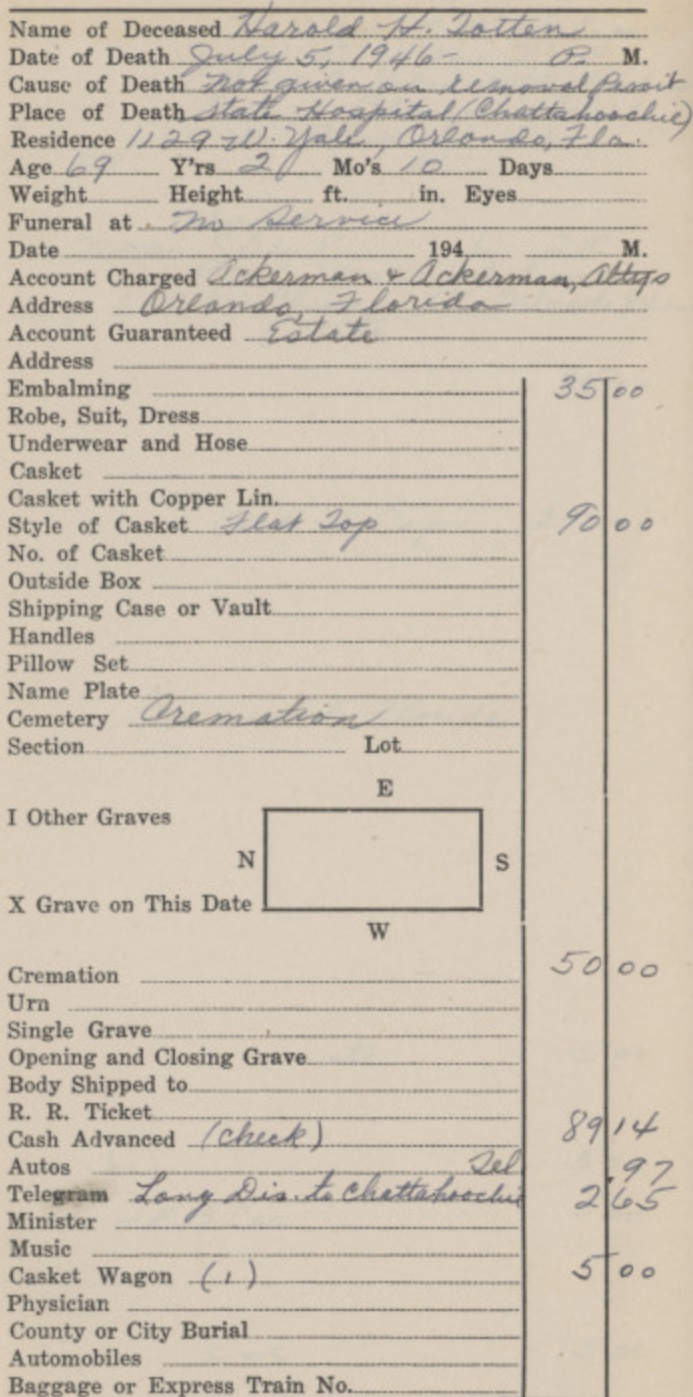 Name of Deceased Harold H. Totten
Date of Death July 5, 1946- P. M.
Cause of Death Not given on removal Permit
Place of Death State Hospital (Chattahoochie)
Residence 1129 W. Yale, Orlando, Fla.
Age 69 Y'rs 2 Mo's 10 Days
Weight Height ft. in. Eyes
Funeral at No Service
Date 194 M.
Account Charged Ackerman & Ackerman, Attys
Address Orlando, Florida
Account Guaranteed Estate
Address
Embalming 35 00
Robe, Suit, Dress
Underwear and Hose
Casket
Casket with Copper Lin.
Style of Casket Flat Top 90 00
No. of Casket
Outside Box
Shipping Case or Vault
Handles
Pillow Set
Name Plate
Cemetery Cremation
Section Lot
E
I Other Graves
N S
X Grave on This Date
W
Cremation 50 00
Urn
Single Grave
Opening and Closing Grave
Body Shipped to
R. R. Ticket
Cash Advanced (Check) 89 14
Autos Tel .97
Telegram Long Dis. to Chattahoochie 2 65
Minister
Music
Casket Wagon (1) 5 00
Physician
County or City Burial
Automobiles
Baggage or Express Train No.